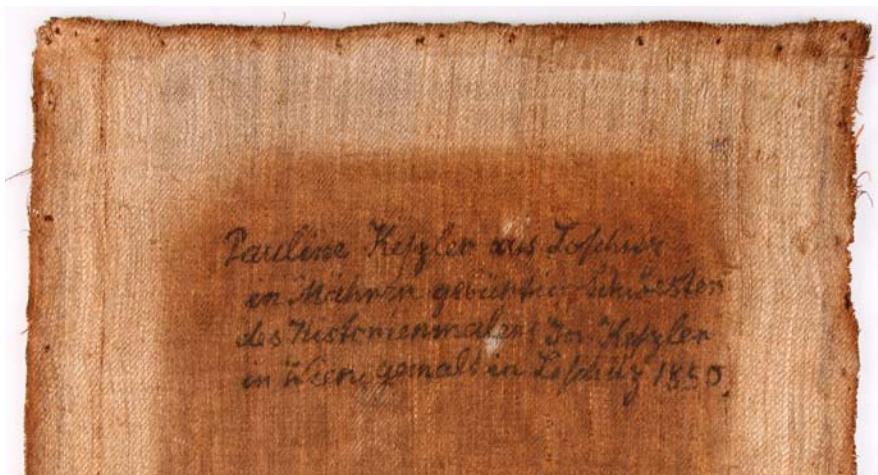 Pauline Keßler aus Loschitz
in Mähren gebürtig Schwester
des Historienmalers Keßler
in Wien, gemalt in Loschitz 1850.